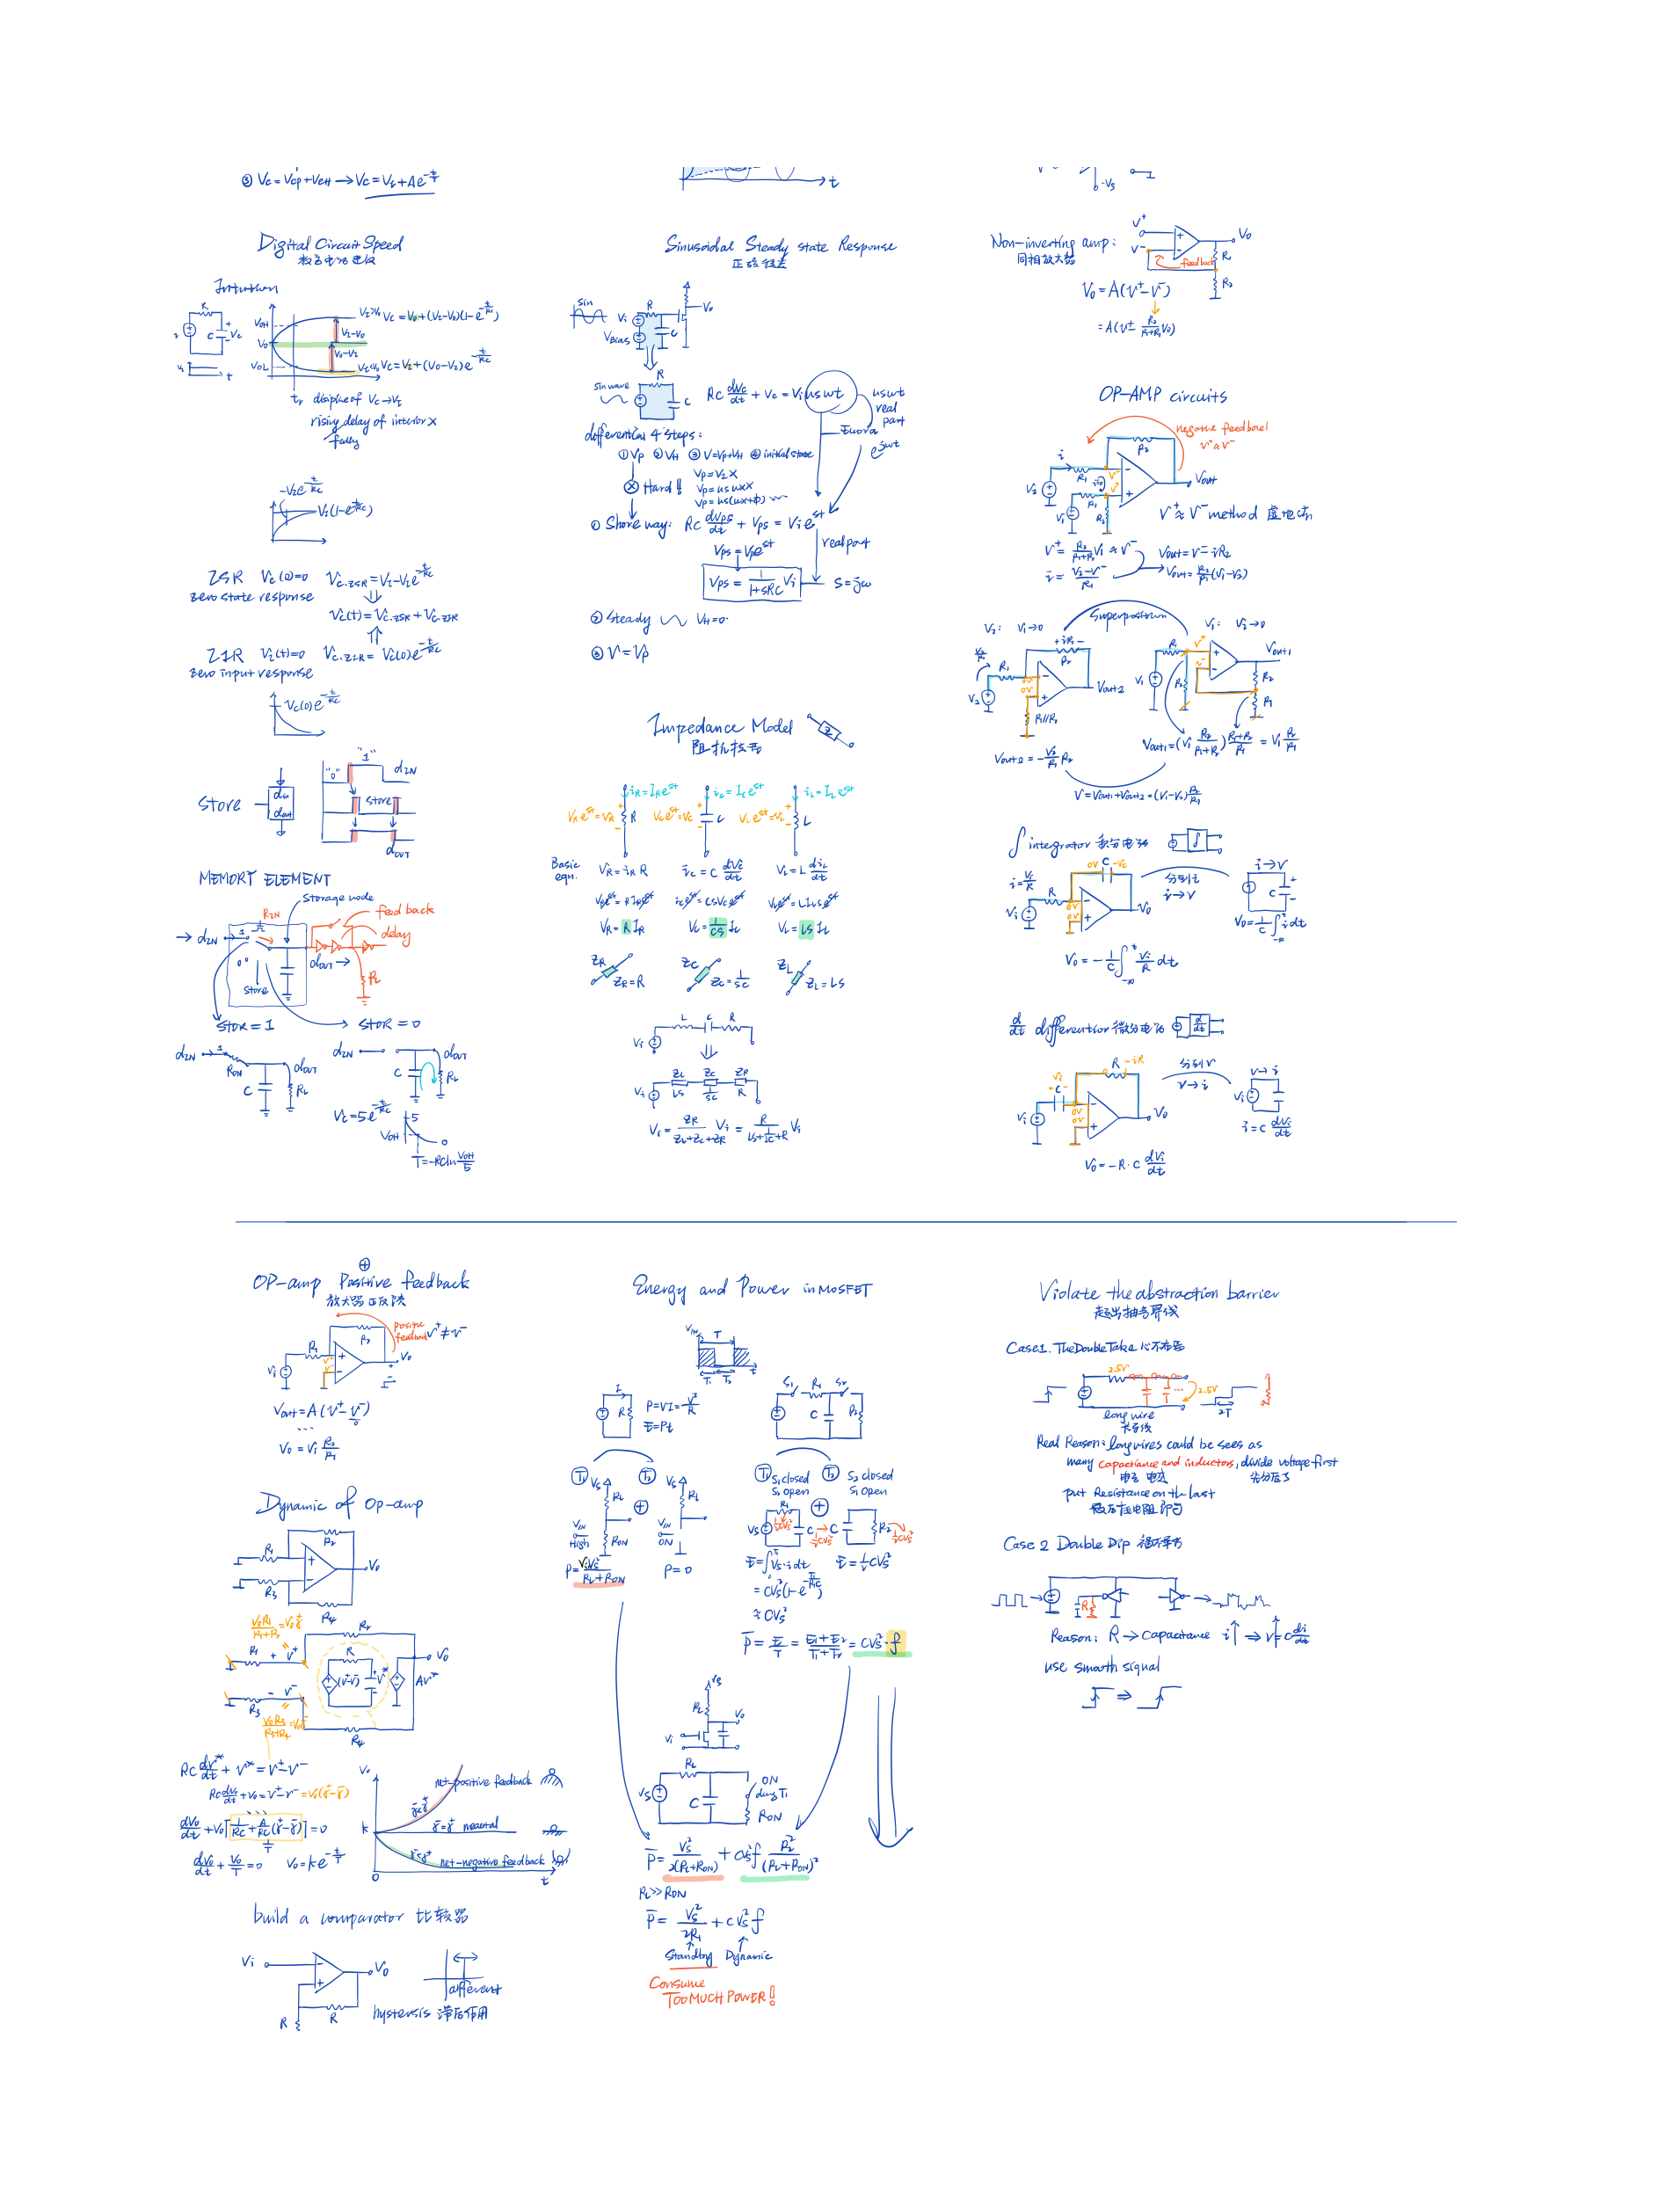 ③ Vc = Vcp + VcH → Vc = VI + Ae^{-t/τ}
Digital Circuit Speed
Intuition
R
C
Vc
VOH
V0
VOL
VI>V0 Vc = V0 + (VI-V0)(1-e^{-t/RC})
VI-V0
V0-VI
VI<V0 Vc = VI + (V0-VI)e^{-t/RC}
t
rising delay of interior X
-VIe^{-t/RC}
VI(1-e^{-t/RC})
ZSR Vc(0)=0 Vc.ZSR = VI-VIe^{-t/RC}
zero state response
⇓
Vc(t) = Vc.ZSR + Vc.ZIR
⇑
ZIR VI(t)=0 Vc.ZIR = Vc(0)e^{-t/RC}
zero input response
Vc(0)e^{-t/RC}
store
dIN
dout
"0"
"1"
dIN
store
dOUT
MEMORY ELEMENT
storage node
RIN
feed back
delay
→ dIN
1
0
dout →
store
RL
STOR = 1
STOR = 0
dIN
RON
C
dout
RL
dIN
C
dout
RL
Vc = 5e^{-t/RC}
5
VOH
0
T = -RCln VOH/5
t
Sinusoidal Steady state Response
正弦稳态
sin
Vi
R
C
Vo
VBIAS
sin wave
R
C
RC dVc/dt + Vc = Vi cos wt
cos wt
real
part
e^{swt}
differential 4 steps:
① Vp ② VH ③ V=Vp+VH ④ initial state
⊗ Hard!
① Shore way: RC dVps/dt + Vps = Vi e^{st}
real part
Vps = Vp e^{st}
Vps = 1/(1+sRC) Vi
S = jω
② Steady VH=0.
③ V = Vp
Impedance Model
Z
iR = IRe^{st}
ic = Ice^{st}
iL = ILe^{st}
VRe^{st}=VR
R
Vce^{st}=Vc
C
VLe^{st}=VL
L
Basic
eqn.
VR = iR R
ic = C dVc/dt
VL = L diL/dt
VRe^{st} = RIRe^{st}
Ice^{st} = CSVce^{st}
VLe^{st} = LILse^{st}
VR = R IR
Vc = 1/CS Ic
VL = LS IL
ZR
ZR = R
ZC
Zc = 1/SC
ZL
ZL = LS
L C R
Vi
⇓
ZL ZC ZR
Vi
LS 1/SC R
Vr = ZR/(ZL+ZC+ZR) Vi = R/(LS+1/SC+R) Vi
-VS
Non-inverting amp:
同相放大器
V+
V-
Vo
feedback
R1
R2
Vo = A(V+ - V-)
OP-AMP circuits
negative feedback
V+ ≈ V-
i
R1
R2
V2
V1
Vout
V+ ≈ V- method
V+ = R2/(R1+R2) V1 ≈ V-
i = (V2-V-)/R1
Vout = V- - iR2
Vout = R2/R1 (V1-V2)
Superposition
V2: V1→0
V1: V2→0
+iR2-
R1
R2
V2
0V
R1//R2
Vout2
R1
V1
Vout1
R2
R1
Vout2 = -V2/R1 R2
Vout1 = (V1 R2/(R1+R2)) (R1+R2)/R1 = V1 R2/R1
V = Vout1 + Vout2 = (V1-V2) R2/R1
∫ integrator 积分电路
i = Vi/R
R
0V C -Vc
Vi
Vo
i→V
i→V
C
Vo = 1/C ∫_{-∞}^{t} i dt
Vo = -1/C ∫_{-∞}^{t} Vi/R dt
d/dt differentior 微分电路
R -iR
Vi
+C-
0V
Vo
V→i
V→i
Vi
i = C dVi/dt
Vo = -R·C dVi/dt
⊕
OP-amp Positive feedback
放大器正反馈
positive
feedback V+ ≠ V-
R1
R2
Vi
Vo
Vout = A(V+ - V-)
0
Vo = Vi R2/R1
Dynamic of Op-amp
R1
R2
R3
R4
Vo
VoR1/(R1+R2) = Voγ+
R2
R1 + V+
R
(V+-V-)
V*
AV*
Vo
R3 - V-
VoR3/(R3+R4) = Voγ-
R4
RC dV*/dt + V* = V+ - V-
RC dVo/dt + Vo = V+ - V- = Vo(γ+ - γ-)
dVo/dt + Vo[1/RC + A/RC (γ- - γ+)] = 0
1/T
dVo/dt + Vo/T = 0 Vo = ke^{-t/T}
Vo
net-positive feedback
γ-<γ+
k
γ- = γ+ neautal
γ->γ+ net-negative feedback
0
t
build a comparator 比较器
Vi
Vo
R
R
different
hystersis 滞后作用
Energy and Power in MOSFET
VIN
T
T1 T2
t
I
R
P = VI = V²/R
E = Pt
S1 R1 S2
C
R2
T1
T2
VS
RL
VIN
High
RON
VS
RL
VIN
ON
P = VS²/(RL+RON)
P = 0
T1 S1 closed
S2 open
T2 S2 closed
S1 open
VS
R1
½CVS²
C → C
½CVS²
R2
½CVS²
E = ∫ VS·i dt
= CVS²(1-e^{-T1/R1C})
≈ CVS²
E = ½CVS²
P̄ = E/T = (E1+E2)/(T1+T2) = CVS²·f
VS
RL
Vi
Vo
RL
VS
C
ON
during T1
RON
P̄ = VS²/2(RL+RON) + CVS²f RL²/(RL+RON)²
RL >> RON
P̄ = VS²/2RL + CVS²f
Standby Dynamic
Consume
TOO MUCH POWER!
Violate the abstraction barrier
超出抽象界线
Case1. The Double Take 心不在焉
2.5V
2.5V
2T
long wire
长导线
Real Reason: long wires could be sees as
many capacitance and inductors, divide voltage first
put Resistance on the last
Case 2 Double Dip 祸不单行
R
Reason: R → Capacitance i↑ ⇒ V↑ = C di/dt
use smooth signal
⇒